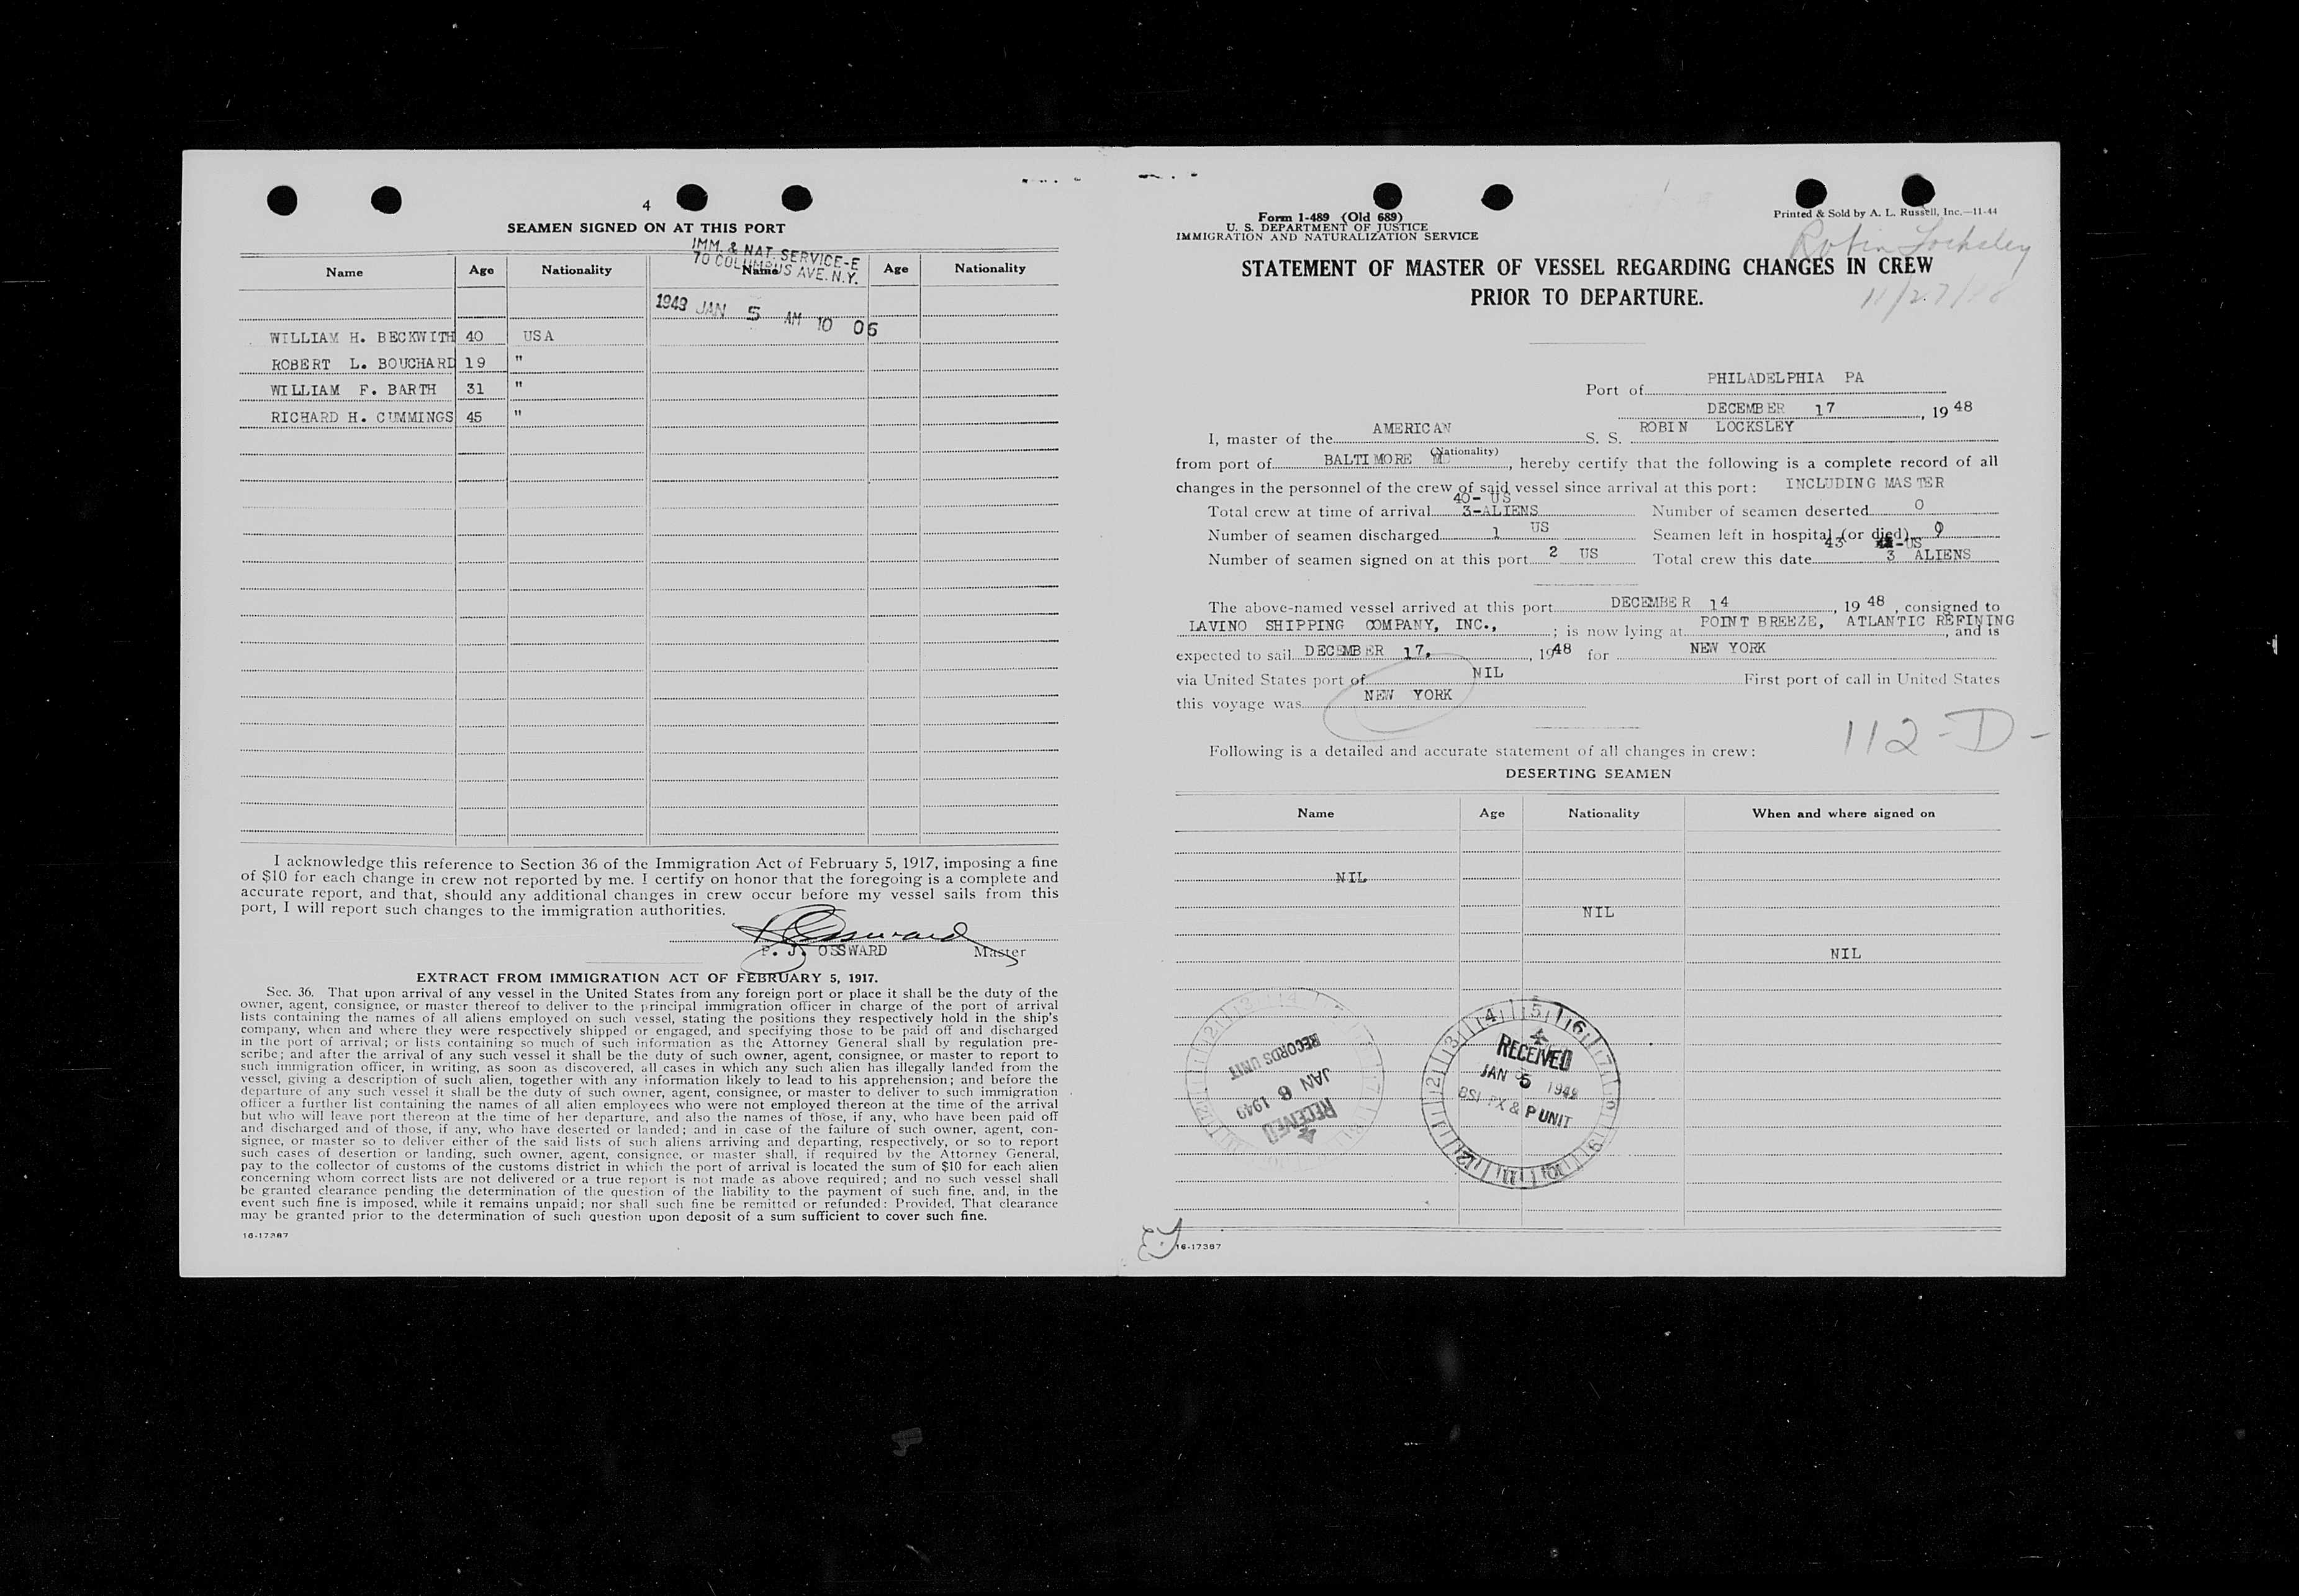 4
SEAMEN SIGNED ON AT THIS PORT
IMM. & NAT. SERVICE-E
70 COLUMBUS AVE. N.Y.
Name Age Nationality Name Age Nationality
1949 JAN 5 AM 10 06
WILLIAM H. BECKWITH 40 USA
ROBERT L. BOUCHARD 19 "
WILLIAM F. BARTH 31 "
RICHARD H. CUMMINGS 45 "
I acknowledge this reference to Section 36 of the Immigration Act of February 5, 1917, imposing a fine
of $10 for each change in crew not reported by me. I certify on honor that the foregoing is a complete and
accurate report, and that, should any additional changes in crew occur before my vessel sails from this
port, I will report such changes to the immigration authorities.
P. J. OSSWARD Master
EXTRACT FROM IMMIGRATION ACT OF FEBRUARY 5, 1917.
Sec. 36. That upon arrival of any vessel in the United States from any foreign port or place it shall be the duty of the
owner, agent, consignee, or master thereof to deliver to the principal immigration officer in charge of the port of arrival
lists containing the names of all aliens employed on such vessel, stating the positions they respectively hold in the ship's
company, when and where they were respectively shipped or engaged, and specifying those to be paid off and discharged
in the port of arrival; or lists containing so much of such information as the Attorney General shall by regulation pre-
scribe; and after the arrival of any such vessel it shall be the duty of such owner, agent, consignee, or master to report to
such immigration officer, in writing, as soon as discovered, all cases in which any such alien has illegally landed from the
vessel, giving a description of such alien, together with any information likely to lead to his apprehension; and before the
departure of any such vessel it shall be the duty of such owner, agent, consignee, or master to deliver to such immigration
officer a further list containing the names of all alien employees who were not employed thereon at the time of the arrival
but who will leave port thereon at the time of her departure, and also the names of those, if any, who have been paid off
and discharged and of those, if any, who have deserted or landed; and in case of the failure of such owner, agent, con-
signee, or master so to deliver either of the said lists of such aliens arriving and departing, respectively, or so to report
such cases of desertion or landing, such owner, agent, consignee, or master shall, if required by the Attorney General,
pay to the collector of customs of the customs district in which the port of arrival is located the sum of $10 for each alien
concerning whom correct lists are not delivered or a true report is not made as above required; and no such vessel shall
be granted clearance pending the determination of the question of the liability to the payment of such fine, and, in the
event such fine is imposed, while it remains unpaid; nor shall such fine be remitted or refunded: Provided, That clearance
may be granted prior to the determination of such question upon deposit of a sum sufficient to cover such fine.
16-17387
Form 1-489 (Old 689)
U. S. DEPARTMENT OF JUSTICE
IMMIGRATION AND NATURALIZATION SERVICE
Printed & Sold by A. L. Russell, Inc.—11-44
Robin Locksley
11/27/48
STATEMENT OF MASTER OF VESSEL REGARDING CHANGES IN CREW
PRIOR TO DEPARTURE.
Port of PHILADELPHIA PA
DECEMBER 17, 1948
I, master of the AMERICAN S. S. ROBIN LOCKSLEY
(Nationality)
from port of BALTIMORE MD, hereby certify that the following is a complete record of all
changes in the personnel of the crew of said vessel since arrival at this port: INCLUDING MASTER
40- US
Total crew at time of arrival 3-ALIENS Number of seamen deserted 0
Number of seamen discharged 1 US Seamen left in hospital (or died) 0
43 -US
Number of seamen signed on at this port 2 US Total crew this date 3 ALIENS
The above-named vessel arrived at this port DECEMBER 14, 1948, consigned to
LAVINO SHIPPING COMPANY, INC., ; is now lying at POINT BREEZE, ATLANTIC REFINING, and is
expected to sail DECEMBER 17, 1948 for NEW YORK
via United States port of NIL First port of call in United States
this voyage was NEW YORK
112-D-
Following is a detailed and accurate statement of all changes in crew:
DESERTING SEAMEN
Name Age Nationality When and where signed on
NIL
NIL
NIL
RECEIVED
JAN 6 1949
RECORDS UNIT
RECEIVED
JAN 5 1949
BSI PX & P UNIT
16-17387